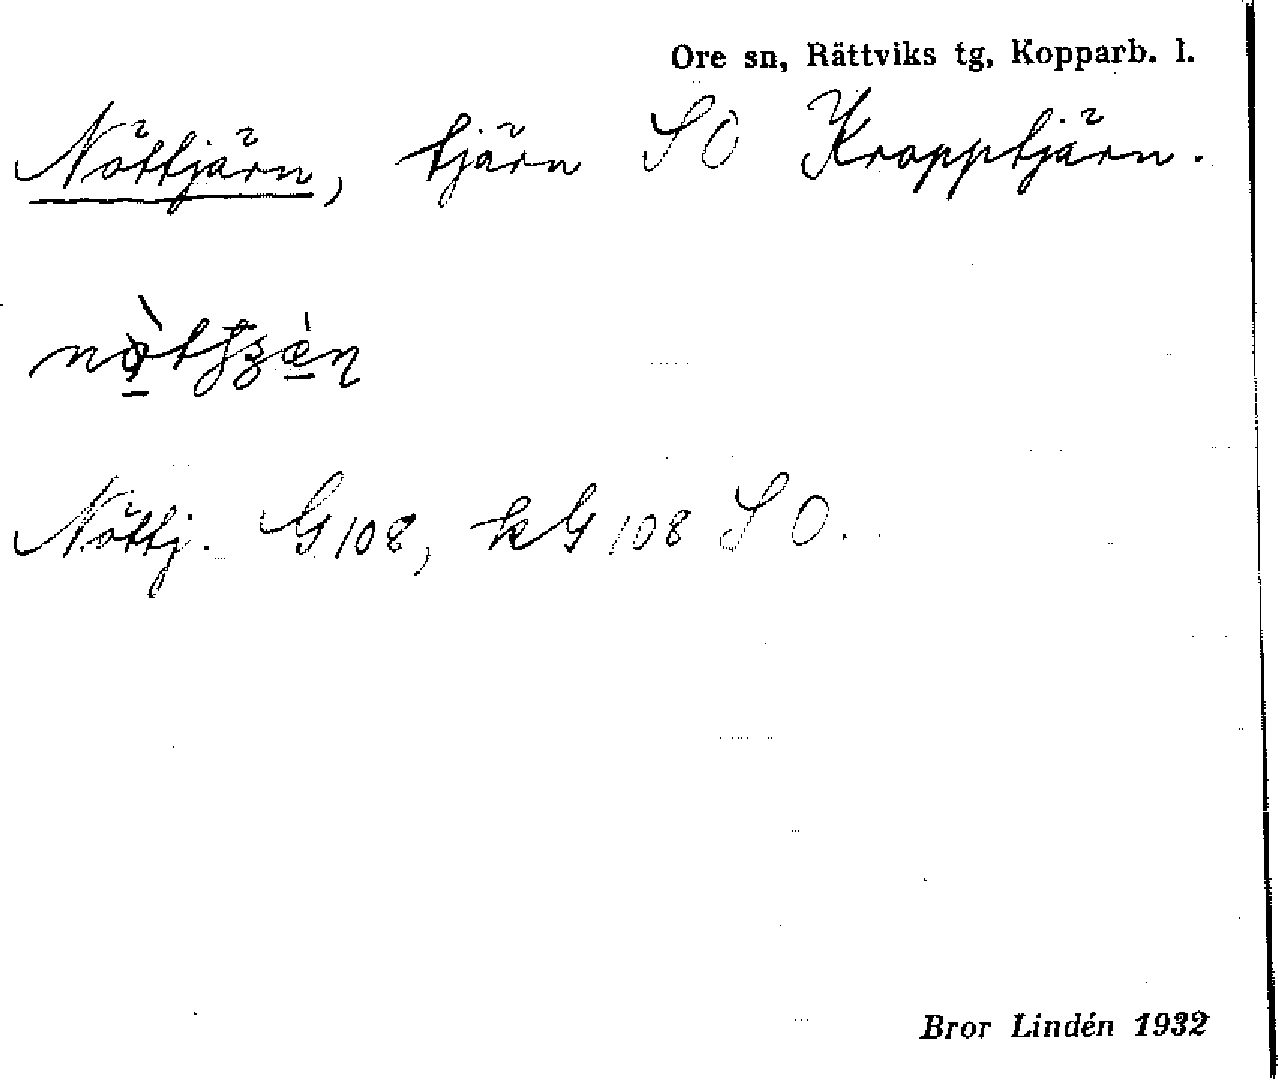 Ore sn, Rättviks tg, Kopparb. l.
Nöttjärn, tjärn SO Kropptjärn.
Nöttj. G108, kG108 SO.
Bror Lindén 1932